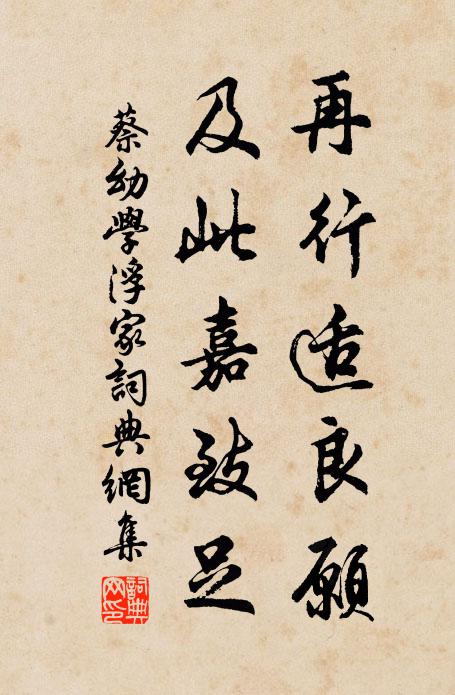 再行适良願
及此嘉致足
蔡幼學浮家詞典網集
詞典網印